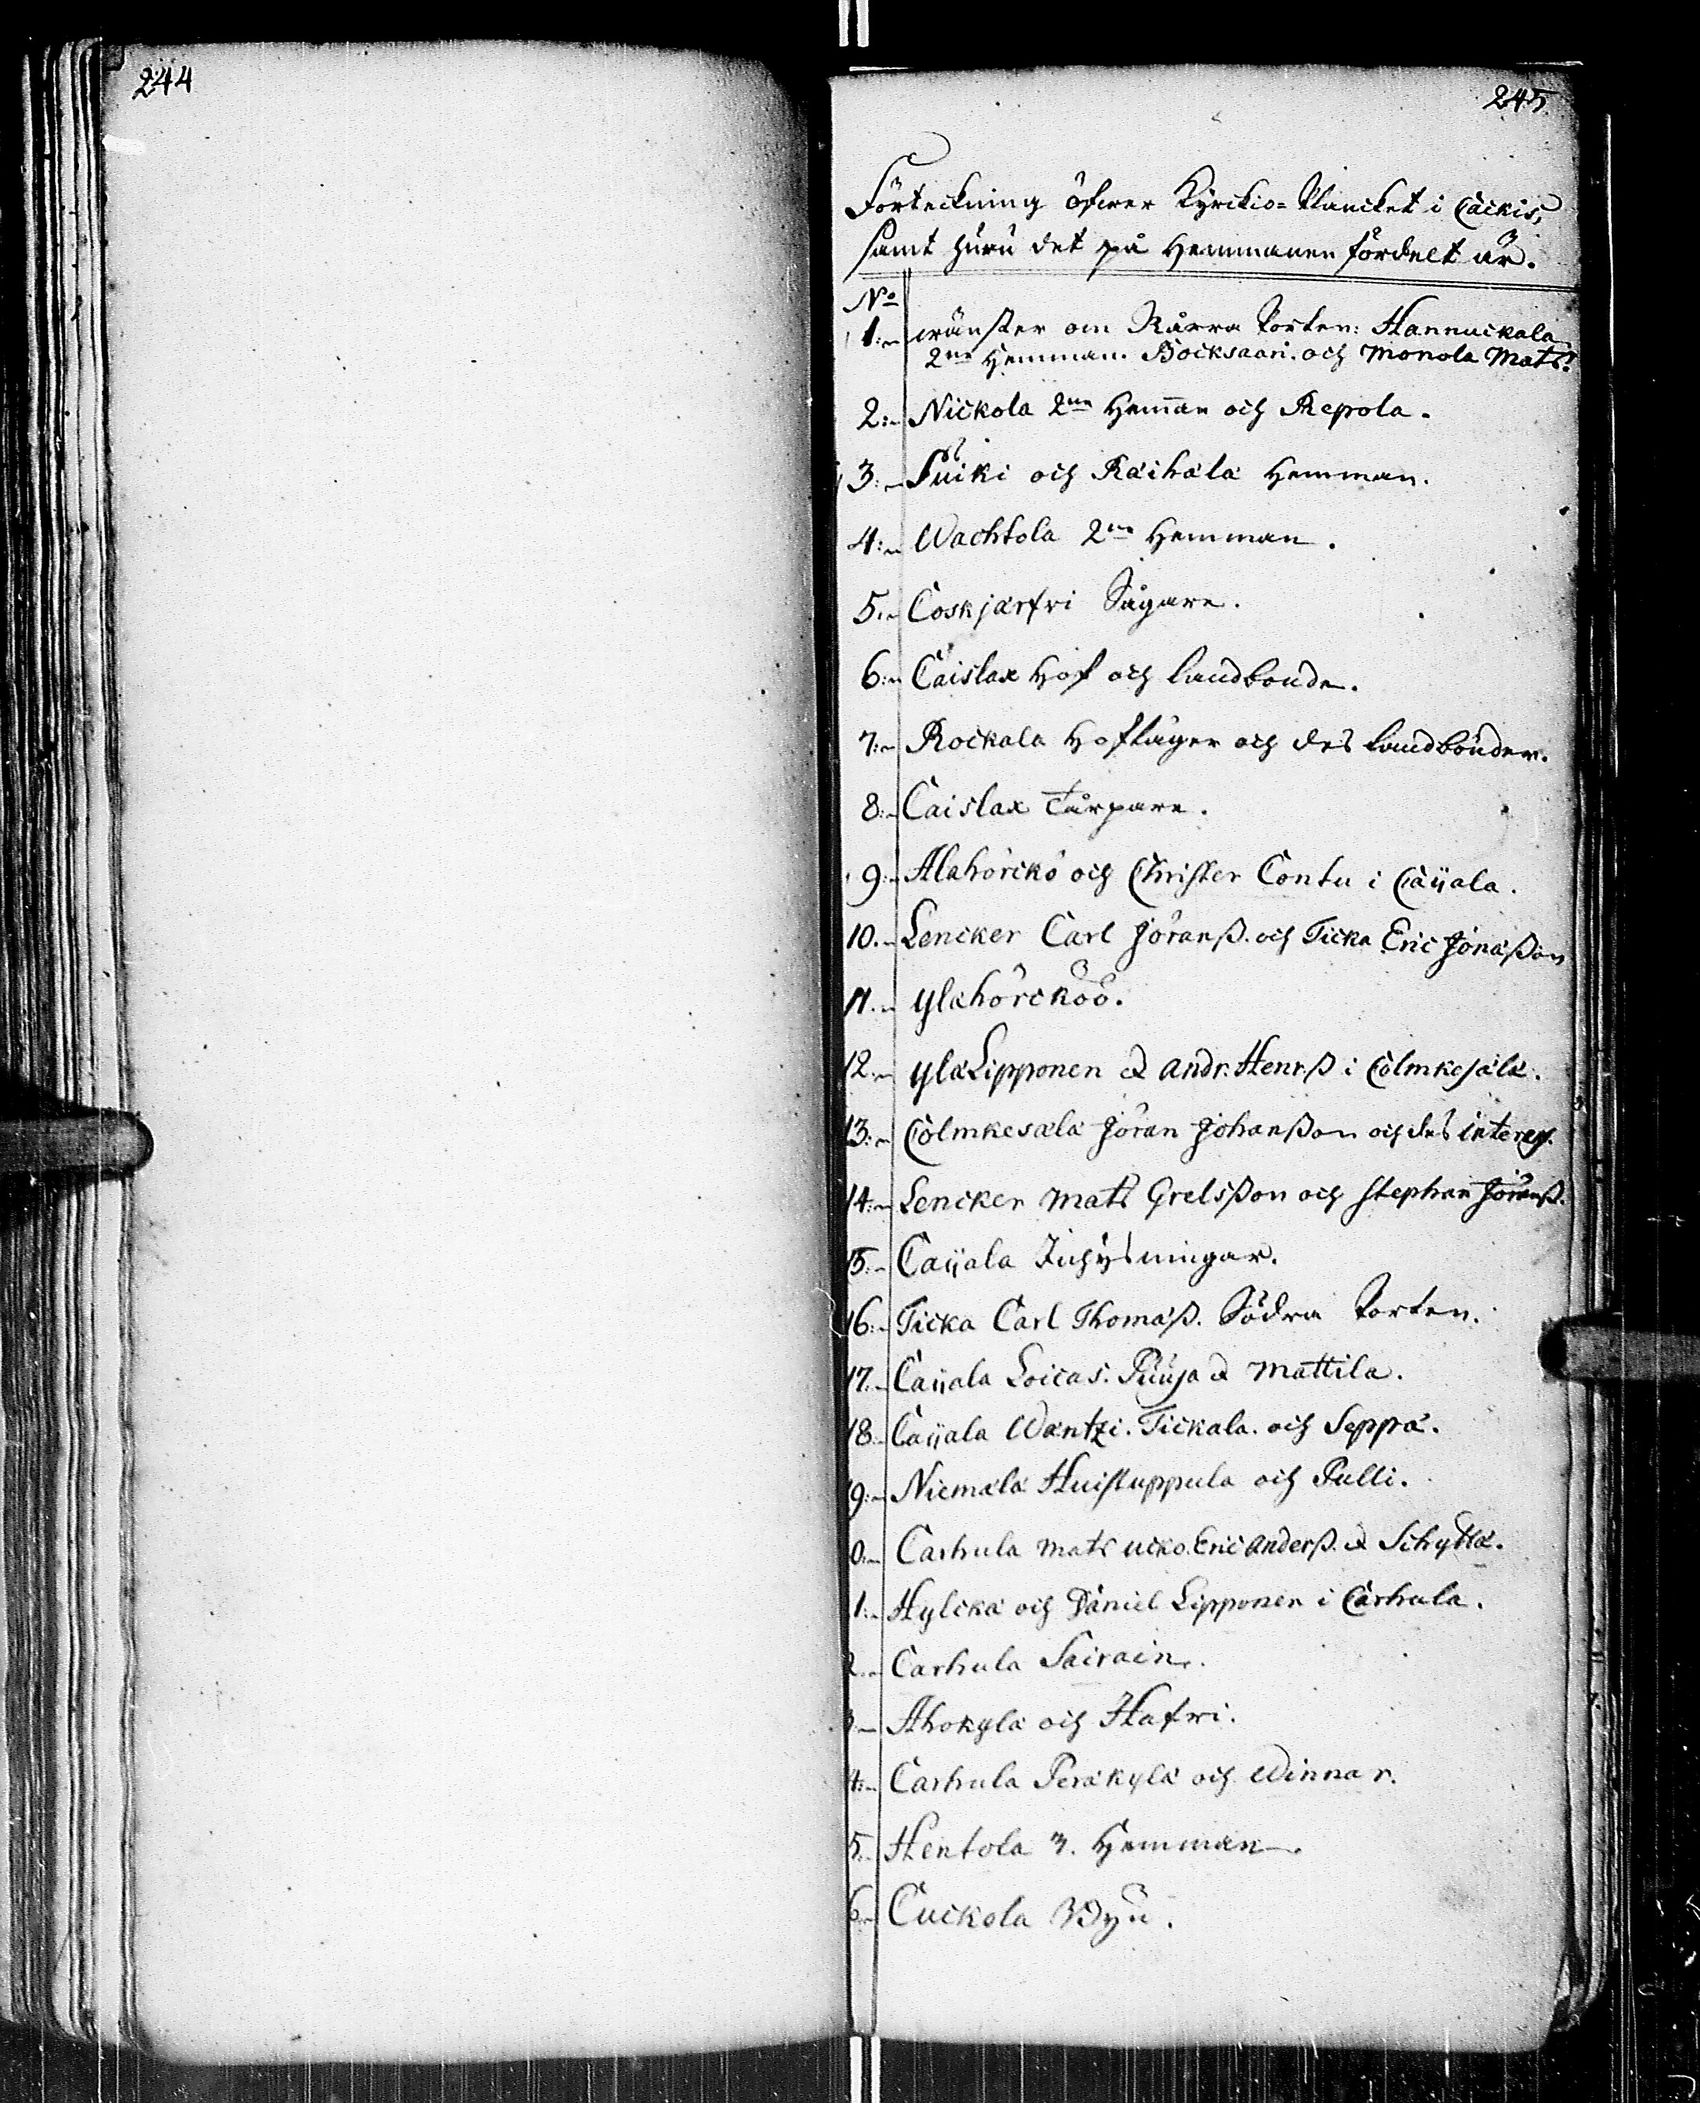 244
245.
Förteckning öfwer Kyrckio-Plancket i Cackis,
samt huru det på Hemmanen fördelt är.
No
1:- wänster om Norra Porten: Hannuckala
2ne Hemman. Bocksaari. och Monola Mats.
2:- Nickola 2ne Hem̄an och Repola.
3:- Suiki och Räihälä Hemman.
4:- Wachtola 2ne Hemman.
5:- Coskjärfvi Sågare.
6:- Caislax Hof och landbonde.
7:- Rockala Hofläger och des landbönder.
8:- Caislax Tårpare.
9:- Alahörckö och Christer Contu i Cäÿala.
10.- Lencker Carl Jöranß. och Ticka Eric Jönaßon
11.- Ylähörcköö.
12.- Ylä Lipponen & Andr. Henr.ß i Colmkesälä.
13:- Colmkesälä Jöran Johanßon och des interess.
14:- Lencker Mats Grelsßon och Stephan Jöranß.
15.- Caÿala Inhÿsningar.
16:- Ticka Carl Thomaß. Södra Porten.
17.- Caÿala Loicas. Puuja & Mattila.
18.- Caÿala Wäntzi. Tickala. och Seppä.
9:- Niemälä Huistuppula och Pulli.
0:- Carhula Mats Ucko. Eric Anderß. & Schyttä.
1:- Hylckä och Daniel Lipponen i Carhula.
2.- Carhula Sairain.
3:- Ahokylä och Hafwi.
4:- Carhula Peräkylä och Winnar.
5.- Hentola 3. Hemman.
6.- Cuckola Byü.